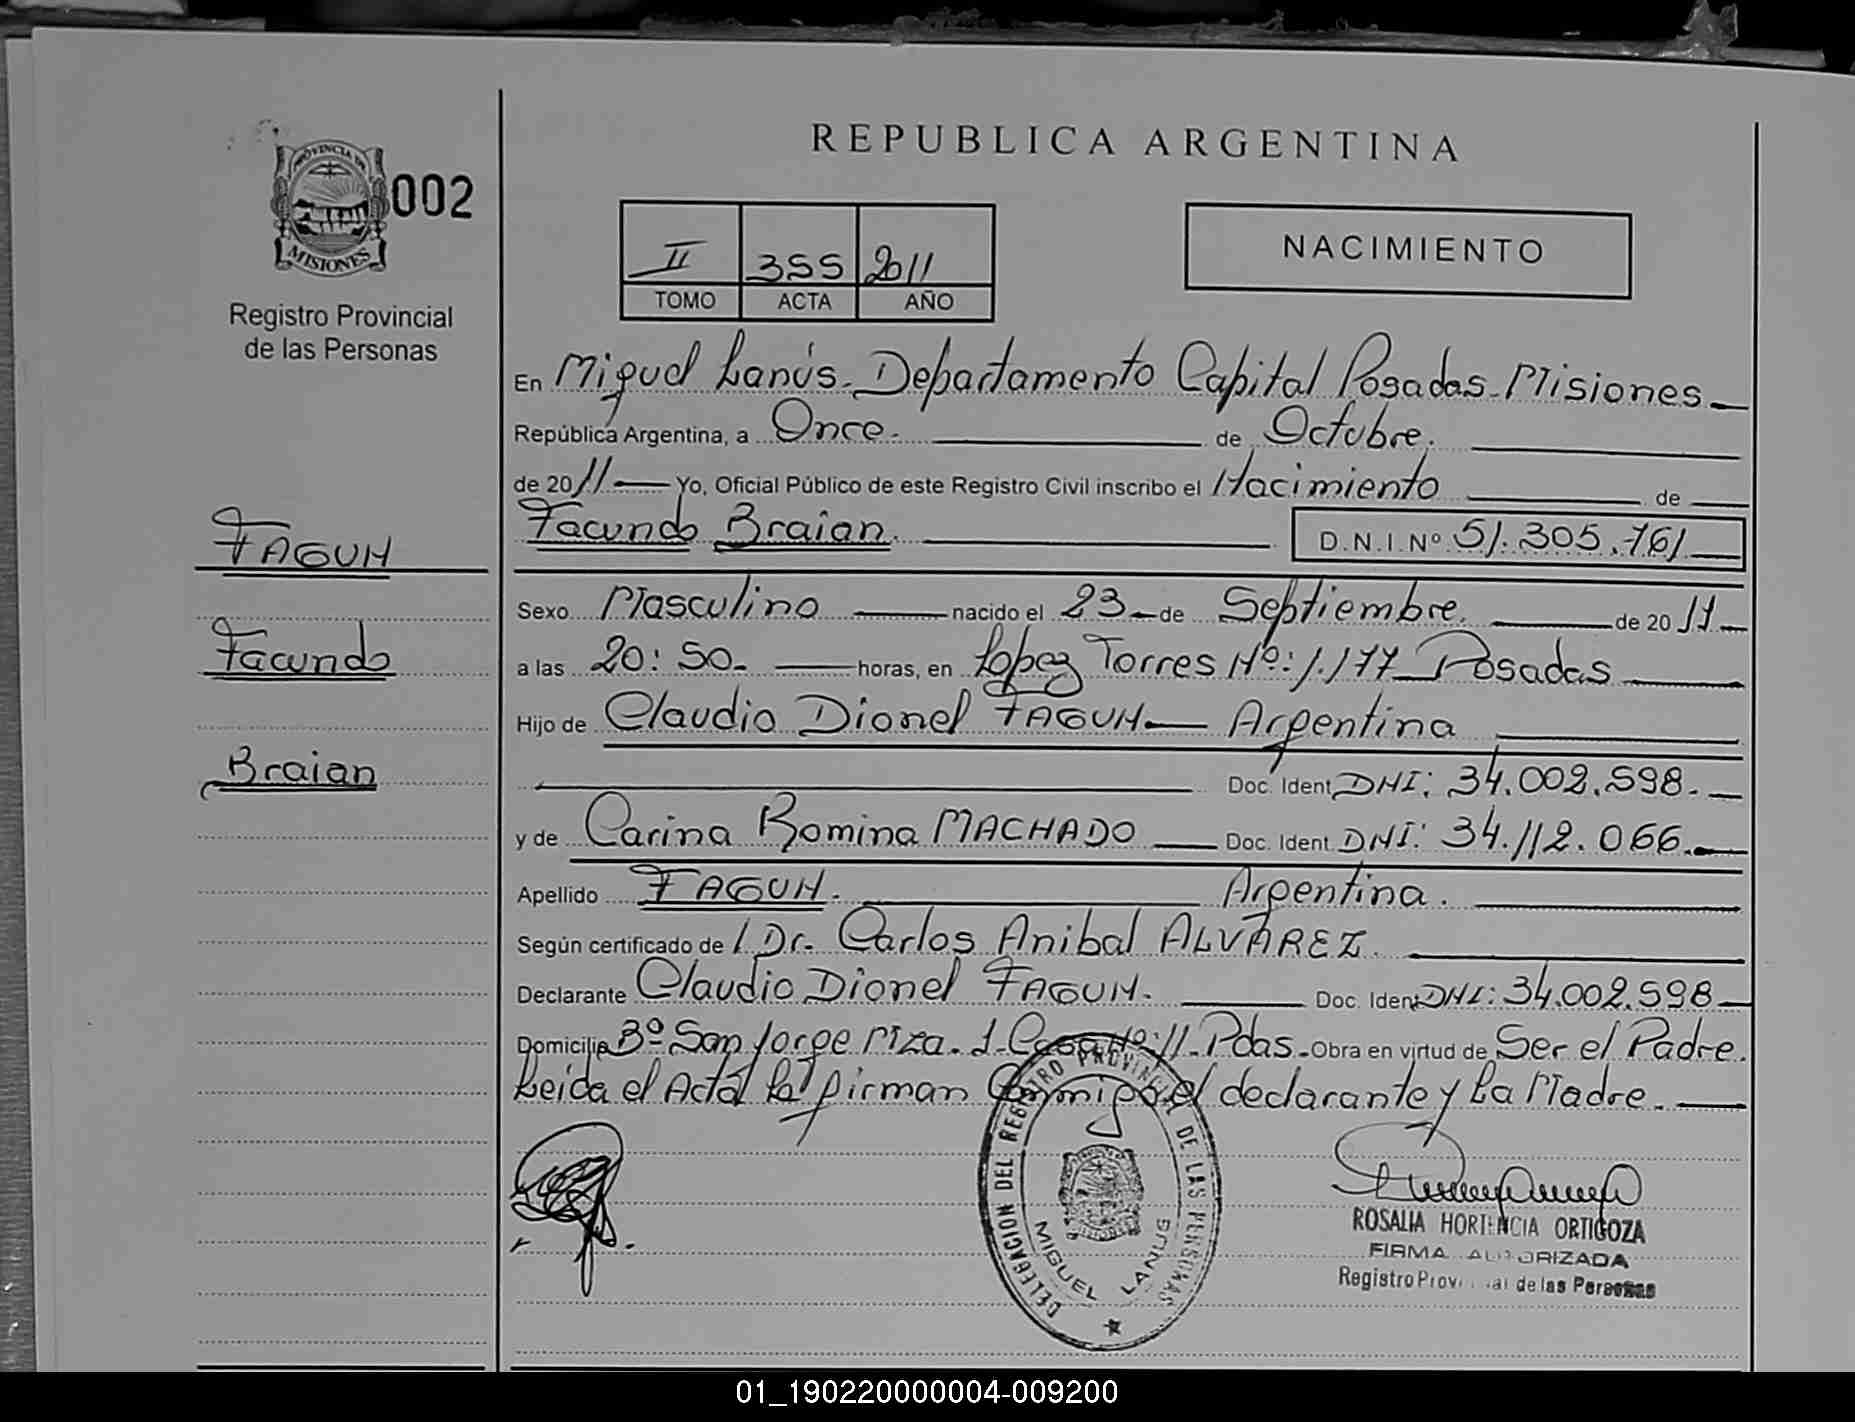 REPUBLICA ARGENTINA
PROVINCIA DE
MISIONES
002
Registro Provincial
de las Personas
II 355 2011
TOMO ACTA AÑO
NACIMIENTO
En Miguel Lanús. Departamento Capital Posadas - Misiones
República Argentina, a Once. de Octubre.
de 2011 Yo, Oficial Público de este Registro Civil inscribo el Nacimiento de
Facundo Braian. D.N.I. Nº 51.305.761
FAGUN
Facundo
Braian
Sexo Masculino nacido el 23 de Septiembre. de 2011
a las 20:50. horas, en Lopez Torres Nº: 1.177 Posadas
Hijo de Claudio Dionel FAGUN Argentina
Doc. Ident. DNI: 34.002.598.
y de Carina Romina MACHADO Doc. Ident. DNI: 34.112.066.
Apellido FAGUN. Argentina.
Según certificado de / Dr. Carlos Anibal ALVAREZ.
Declarante Claudio Dionel FAGUN. Doc. Ident. DNI: 34.002.598
Domicilio Bº San Jorge Mza. 1. Casa Nº: 11. Pdas. Obra en virtud de Ser el Padre.
Leida el Acta la firman Conmigo el declarante y La Madre.
DELEGACION DEL REGISTRO PROVINCIAL DE LAS PERSONAS
MIGUEL LANUS
ROSALIA HORTENCIA ORTIGOZA
FIRMA AUTORIZADA
Registro Provincial de las Personas
01_190220000004-009200